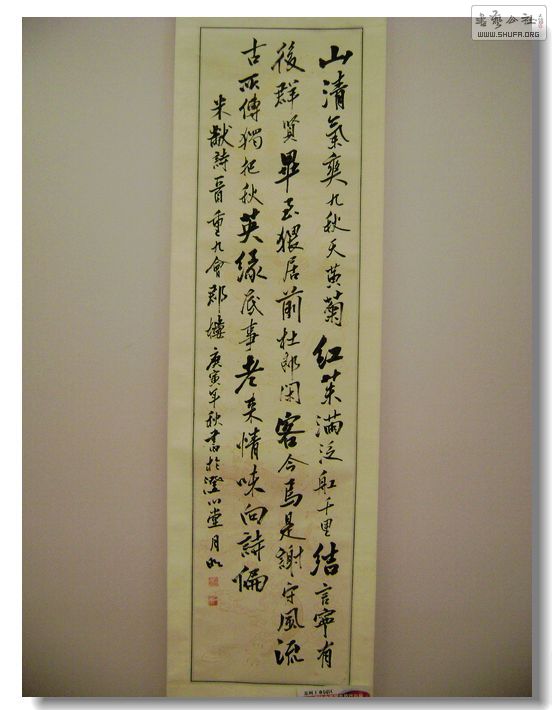 書藝公社
WWW.SHUFA.ORG
山清氣爽九秋天黄菊紅茱滿泛船千里結言寧有
後群賢畢至猥居前杜郎閑客今焉是謝守風流
古所傳獨把秋英緣底事老来情味向詩偏
米黻詩一首重九會郡樓庚寅年秋書於澄心堂月如